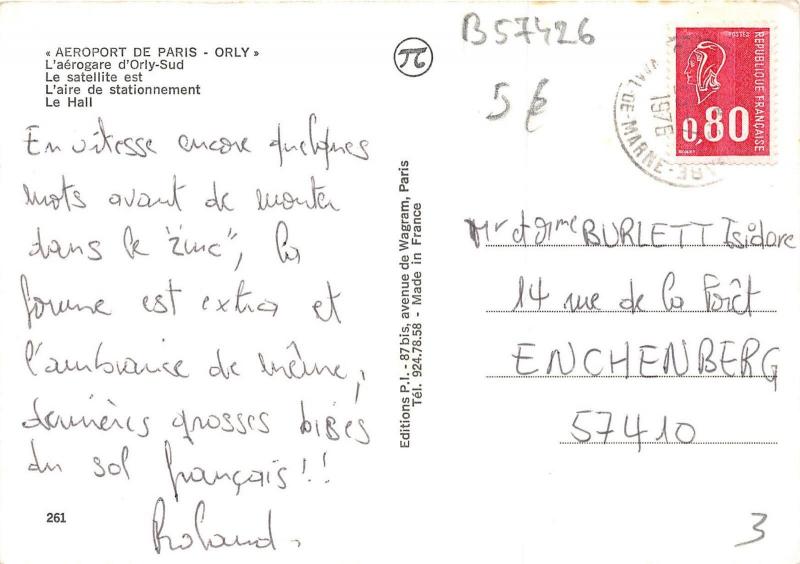 « AEROPORT DE PARIS - ORLY »
L'aérogare d'Orly-Sud
Le satellite est
L'aire de stationnement
Le Hall
En vitesse encore quelques
mots avant de monter
dans le "zinc", la
forme est extra et
l'ambiance de même,
dernières grosses bises
du sol français !!
Roland.
261
Editions P.I. - 87 bis, avenue de Wagram, Paris
Tél. 924.78.58 - Made in France
π
B57426
5 €
VAL-DE-MARNE
1976
POSTES
REPUBLIQUE FRANÇAISE
0,80
Mr et Mme BURLETT Isidore
14 rue de la Forêt
ENCHENBERG
57410
3